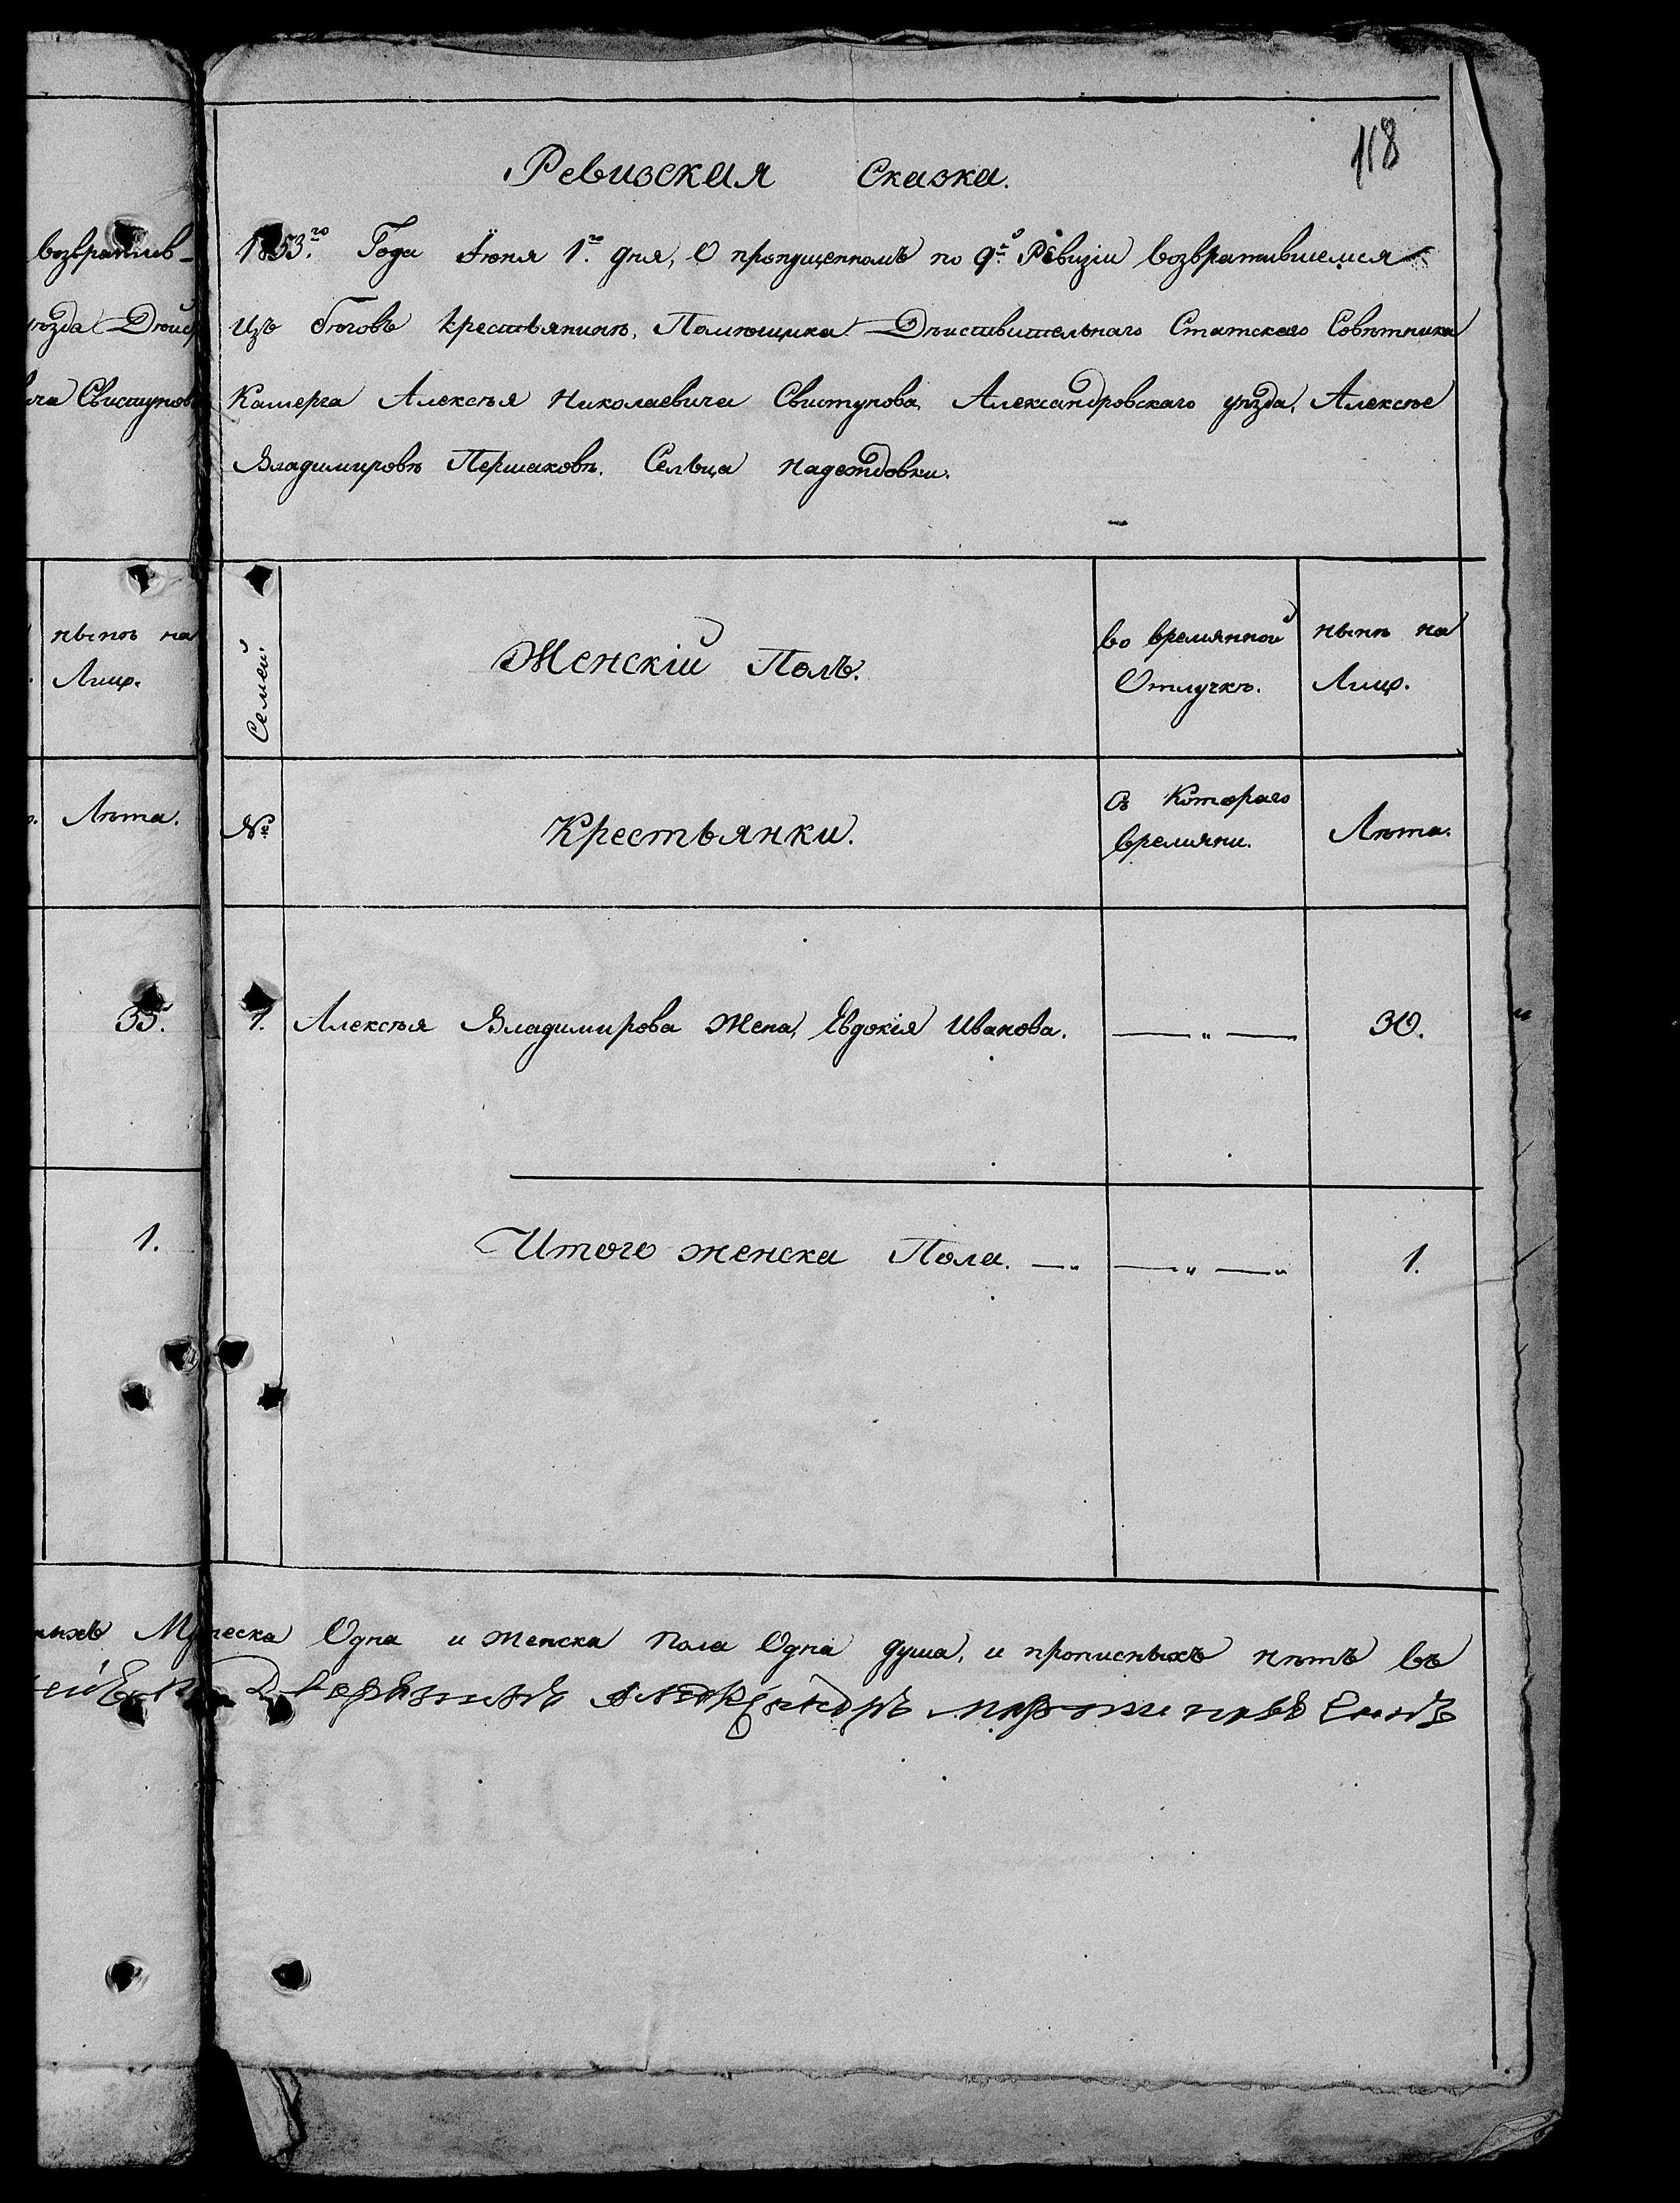 118
Ревизская Сказка.
1853.го Года Іюня 1.го дня, О пропущенномъ по 9.й Ревизіи возвратившемся
изъ бѣговъ крестьянинѣ, Помѣщика Дѣиствительнаго Статскаго Совѣтника
Камерга Алексѣя Николаевича Свистунова, Александровскаго уѣзда, Алексѣе
Владимировѣ Першаковѣ. Сельца Надеждовки.
Семей.
Женскій Полъ.
во времянной
Отлучкѣ.
нынѣ на
Лицо.
№
Крестьянки.
Съ Котораго
времяни.
Лѣта.
1. Алексѣя Владимирова Жена, Евдокія Иванова. — „ — 30.
Итого женска Пола. — „ — „ — „ 1.
Мужеска Одна и женска Пола Одна душа, и прописныхъ нѣтъ въ
возвратив-
уѣзда Дѣйс
Свистунов
нынѣ на
Лицо.
Лѣта.
35.
1.